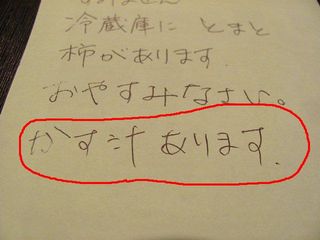 冷蔵庫に とまと
柿があります.
おやすみなさい。
かす汁 あります.